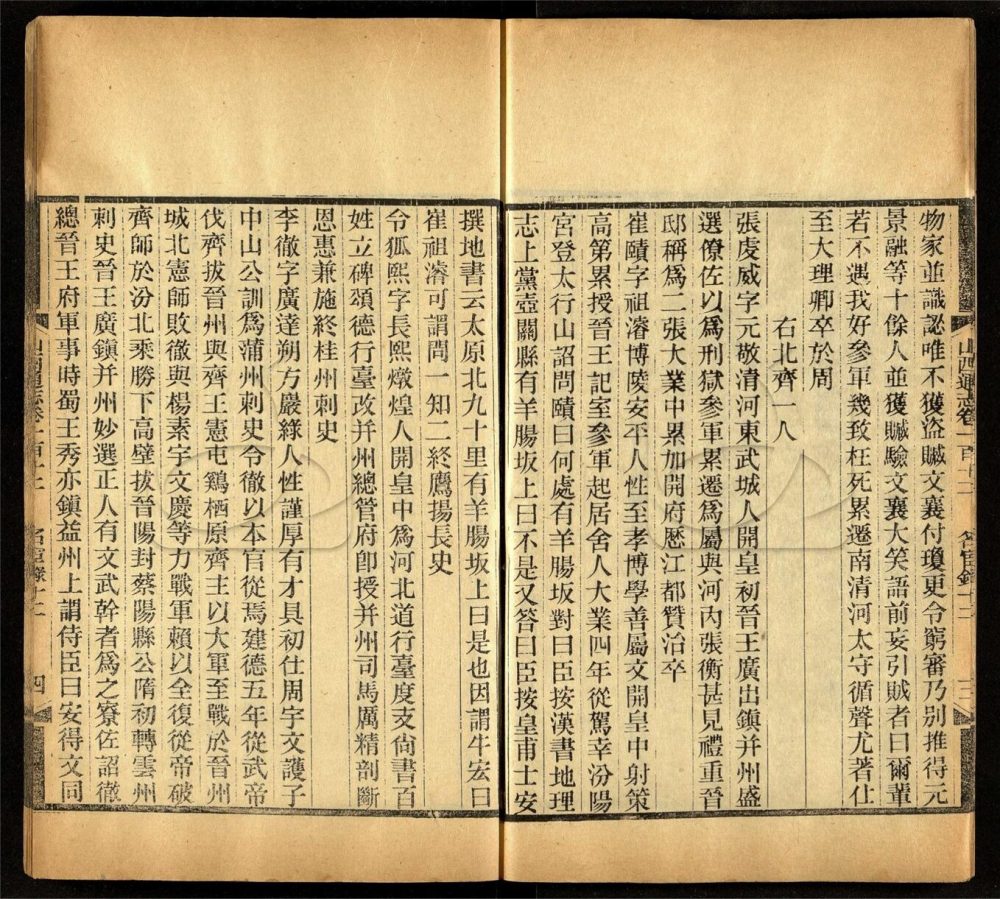 物家並識認唯不獲盜贓文襄付瓊更令窮審乃別推得元
景融等十餘人並獲贓驗文襄大笑語前妄引賊者曰爾輩
若不遇我好參軍幾致枉死累遷南清河太守循聲尤著仕
至大理卿卒於周
右北齊一人
張虔威字元敬清河東武城人開皇初晉王廣出鎮并州盛
選僚佐以爲刑獄參軍累遷爲屬與河內張衡甚見禮重晉
邸稱爲二張大業中累加開府歷江都贊治卒
崔賾字祖濬博陵安平人性至孝博學善屬文開皇中射策
高第累授晉王記室參軍起居舍人大業四年從駕幸汾陽
宮登太行山詔問賾曰何處有羊腸坂對曰臣按漢書地理
志上黨壺關縣有羊腸坂上曰不是又答曰臣按皇甫士安
撰地書云太原北九十里有羊腸坂上曰是也因謂牛宏曰
崔祖濬可謂問一知二終鷹揚長史
令狐熙字長熙燉煌人開皇中爲河北道行臺度支尙書百
姓立碑頌德行臺改并州總管府卽授并州司馬厲精剖斷
恩惠兼施終桂州刺史
李徹字廣達朔方巖綠人性謹厚有才具初仕周宇文護子
中山公訓爲蒲州刺史令徹以本官從焉建德五年從武帝
伐齊拔晉州與齊王憲屯鷄栖原齊主以大軍至戰於晉州
城北憲師敗徹與楊素宇文慶等力戰軍賴以全復從帝破
齊師於汾北乘勝下高壁拔晉陽封蔡陽縣公隋初轉雲州
刺史晉王廣鎮并州妙選正人有文武幹者爲之寮佐詔徹
總晉王府軍事時蜀王秀亦鎮益州上謂侍臣曰安得文同
四